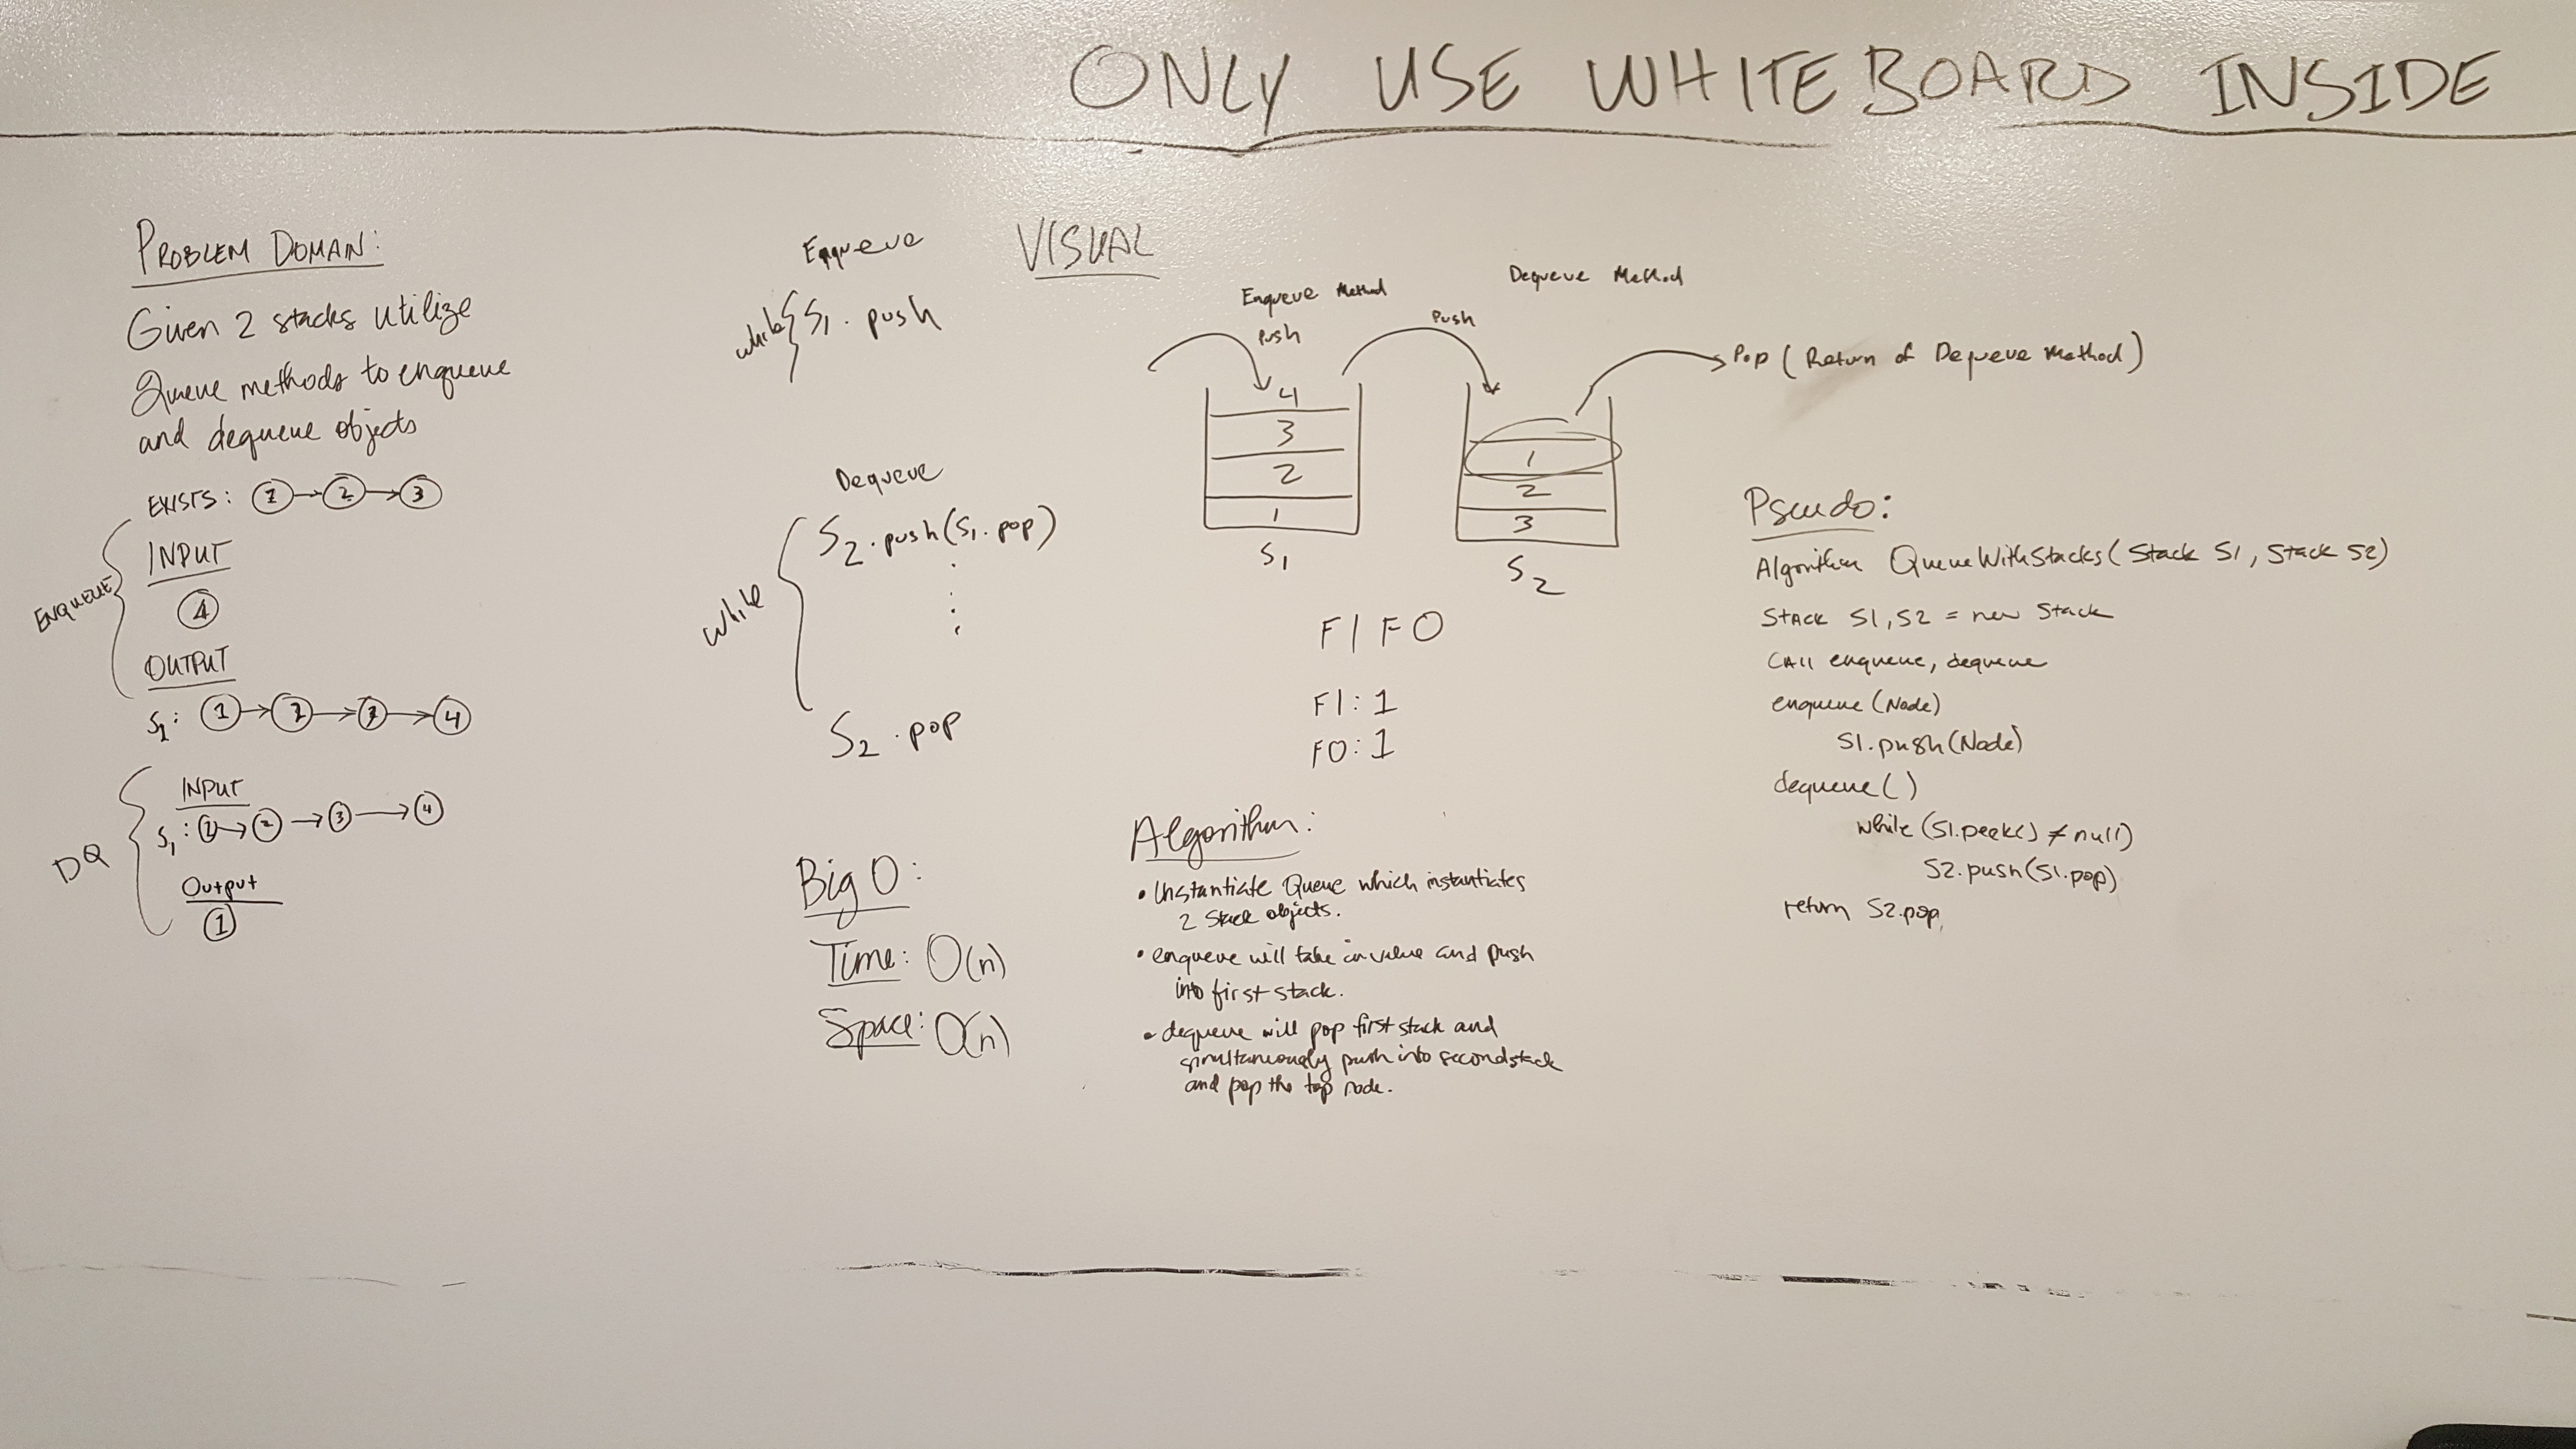 ONLY USE WHITEBOARD INSIDE
PROBLEM DOMAIN:
Given 2 stacks utilize
Queue methods to enqueue
and dequeue objects
EXISTS: 1 2 3
ENQUEUE
INPUT
4
OUTPUT
S1: 1 2 3 4
DQ
INPUT
S1: 1 2 3 4
Output
1
Enqueue
while S1. push
Dequeue
while
S2.push(S1.pop)
S2.pop
VISUAL
Enqueue Method
Push
Dequeue Method
Push
Pop (Return of Dequeue Method)
4
3
2
1
S1
1
2
3
S2
FIFO
FI: 1
FO: 1
Big O:
Time: O(n)
Space: O(n)
Algorithm:
• Instantiate Queue which instantiates
2 Stack objects.
• enqueue will take in value and push
into first stack.
• dequeue will pop first stack and
simultaneously push into second stack
and pop the top node.
Pseudo:
Algorithm QueueWithStacks(Stack S1, Stack S2)
Stack S1, S2 = new Stack
CAll enqueue, dequeue
enqueue (Node)
S1.push(Node)
dequeue()
while (S1.peek() ≠ null)
S2.push(S1.pop)
return S2.pop